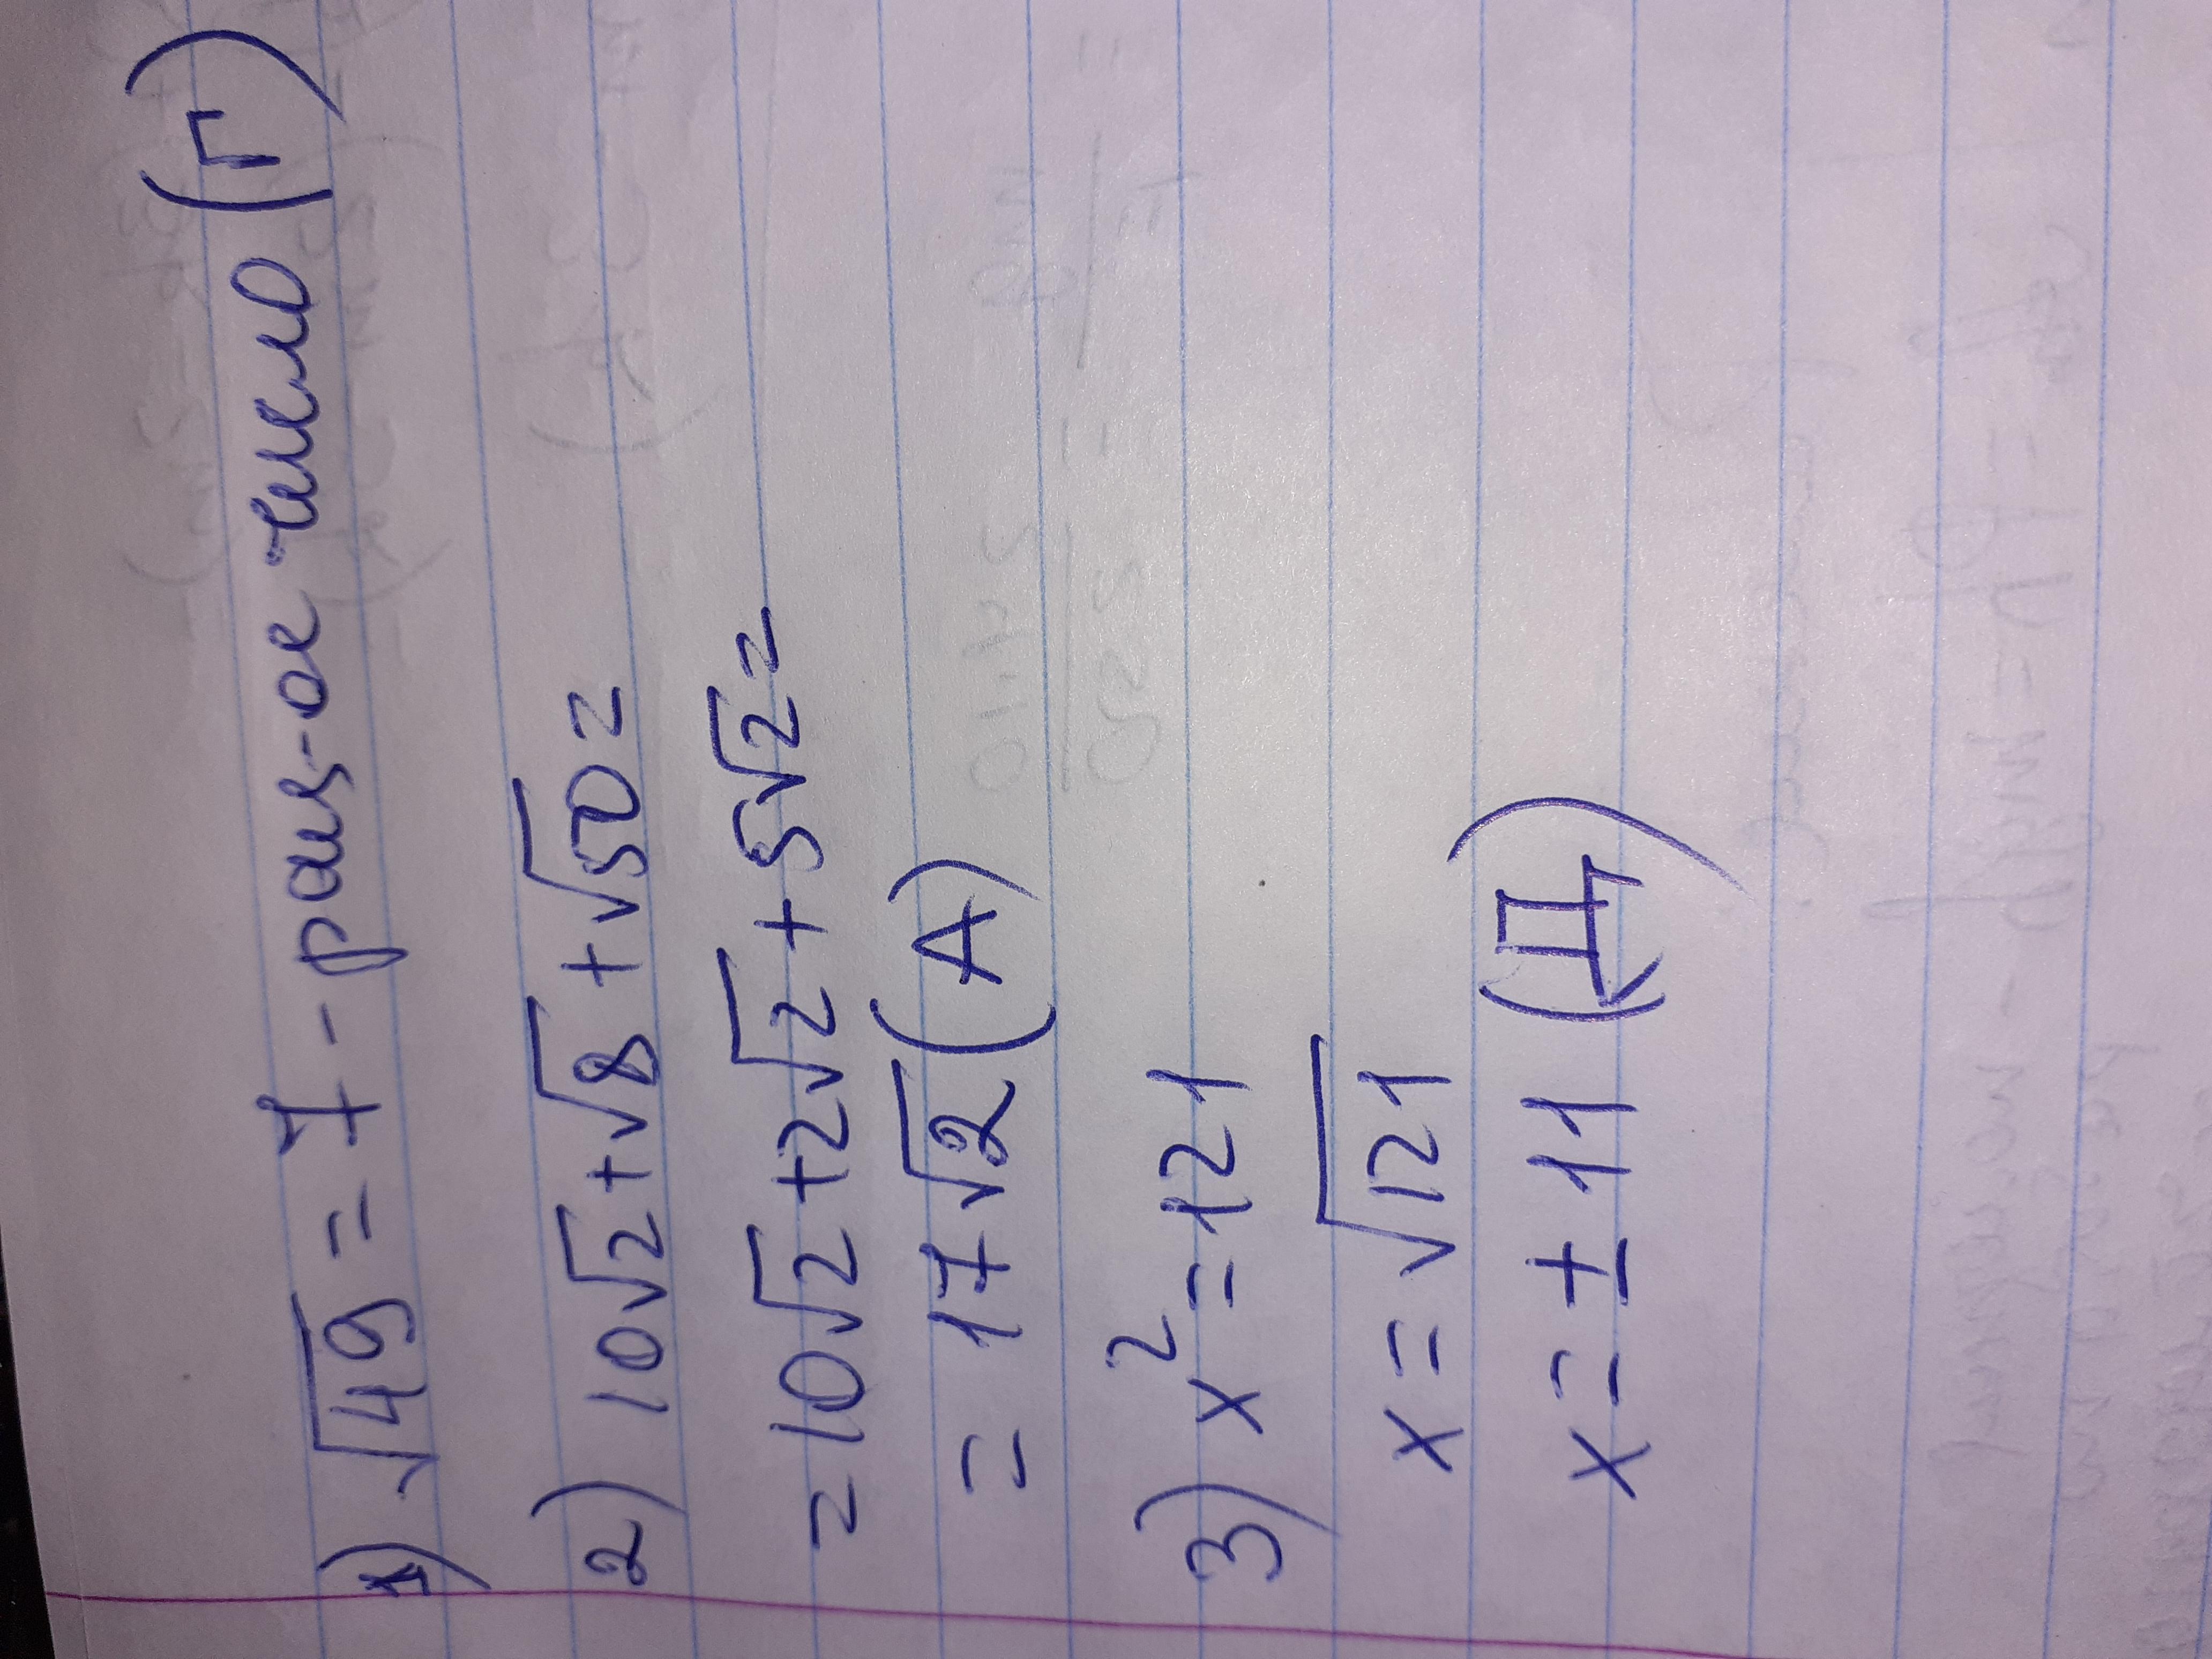 1) √49 = 7 - рац-ое число (Г)
2) 10√2 + √8 + √50 =
= 10√2 + 2√2 + 5√2 =
= 17√2 (А)
3) x² = 121
x = √121
x = ± 11 (Д)